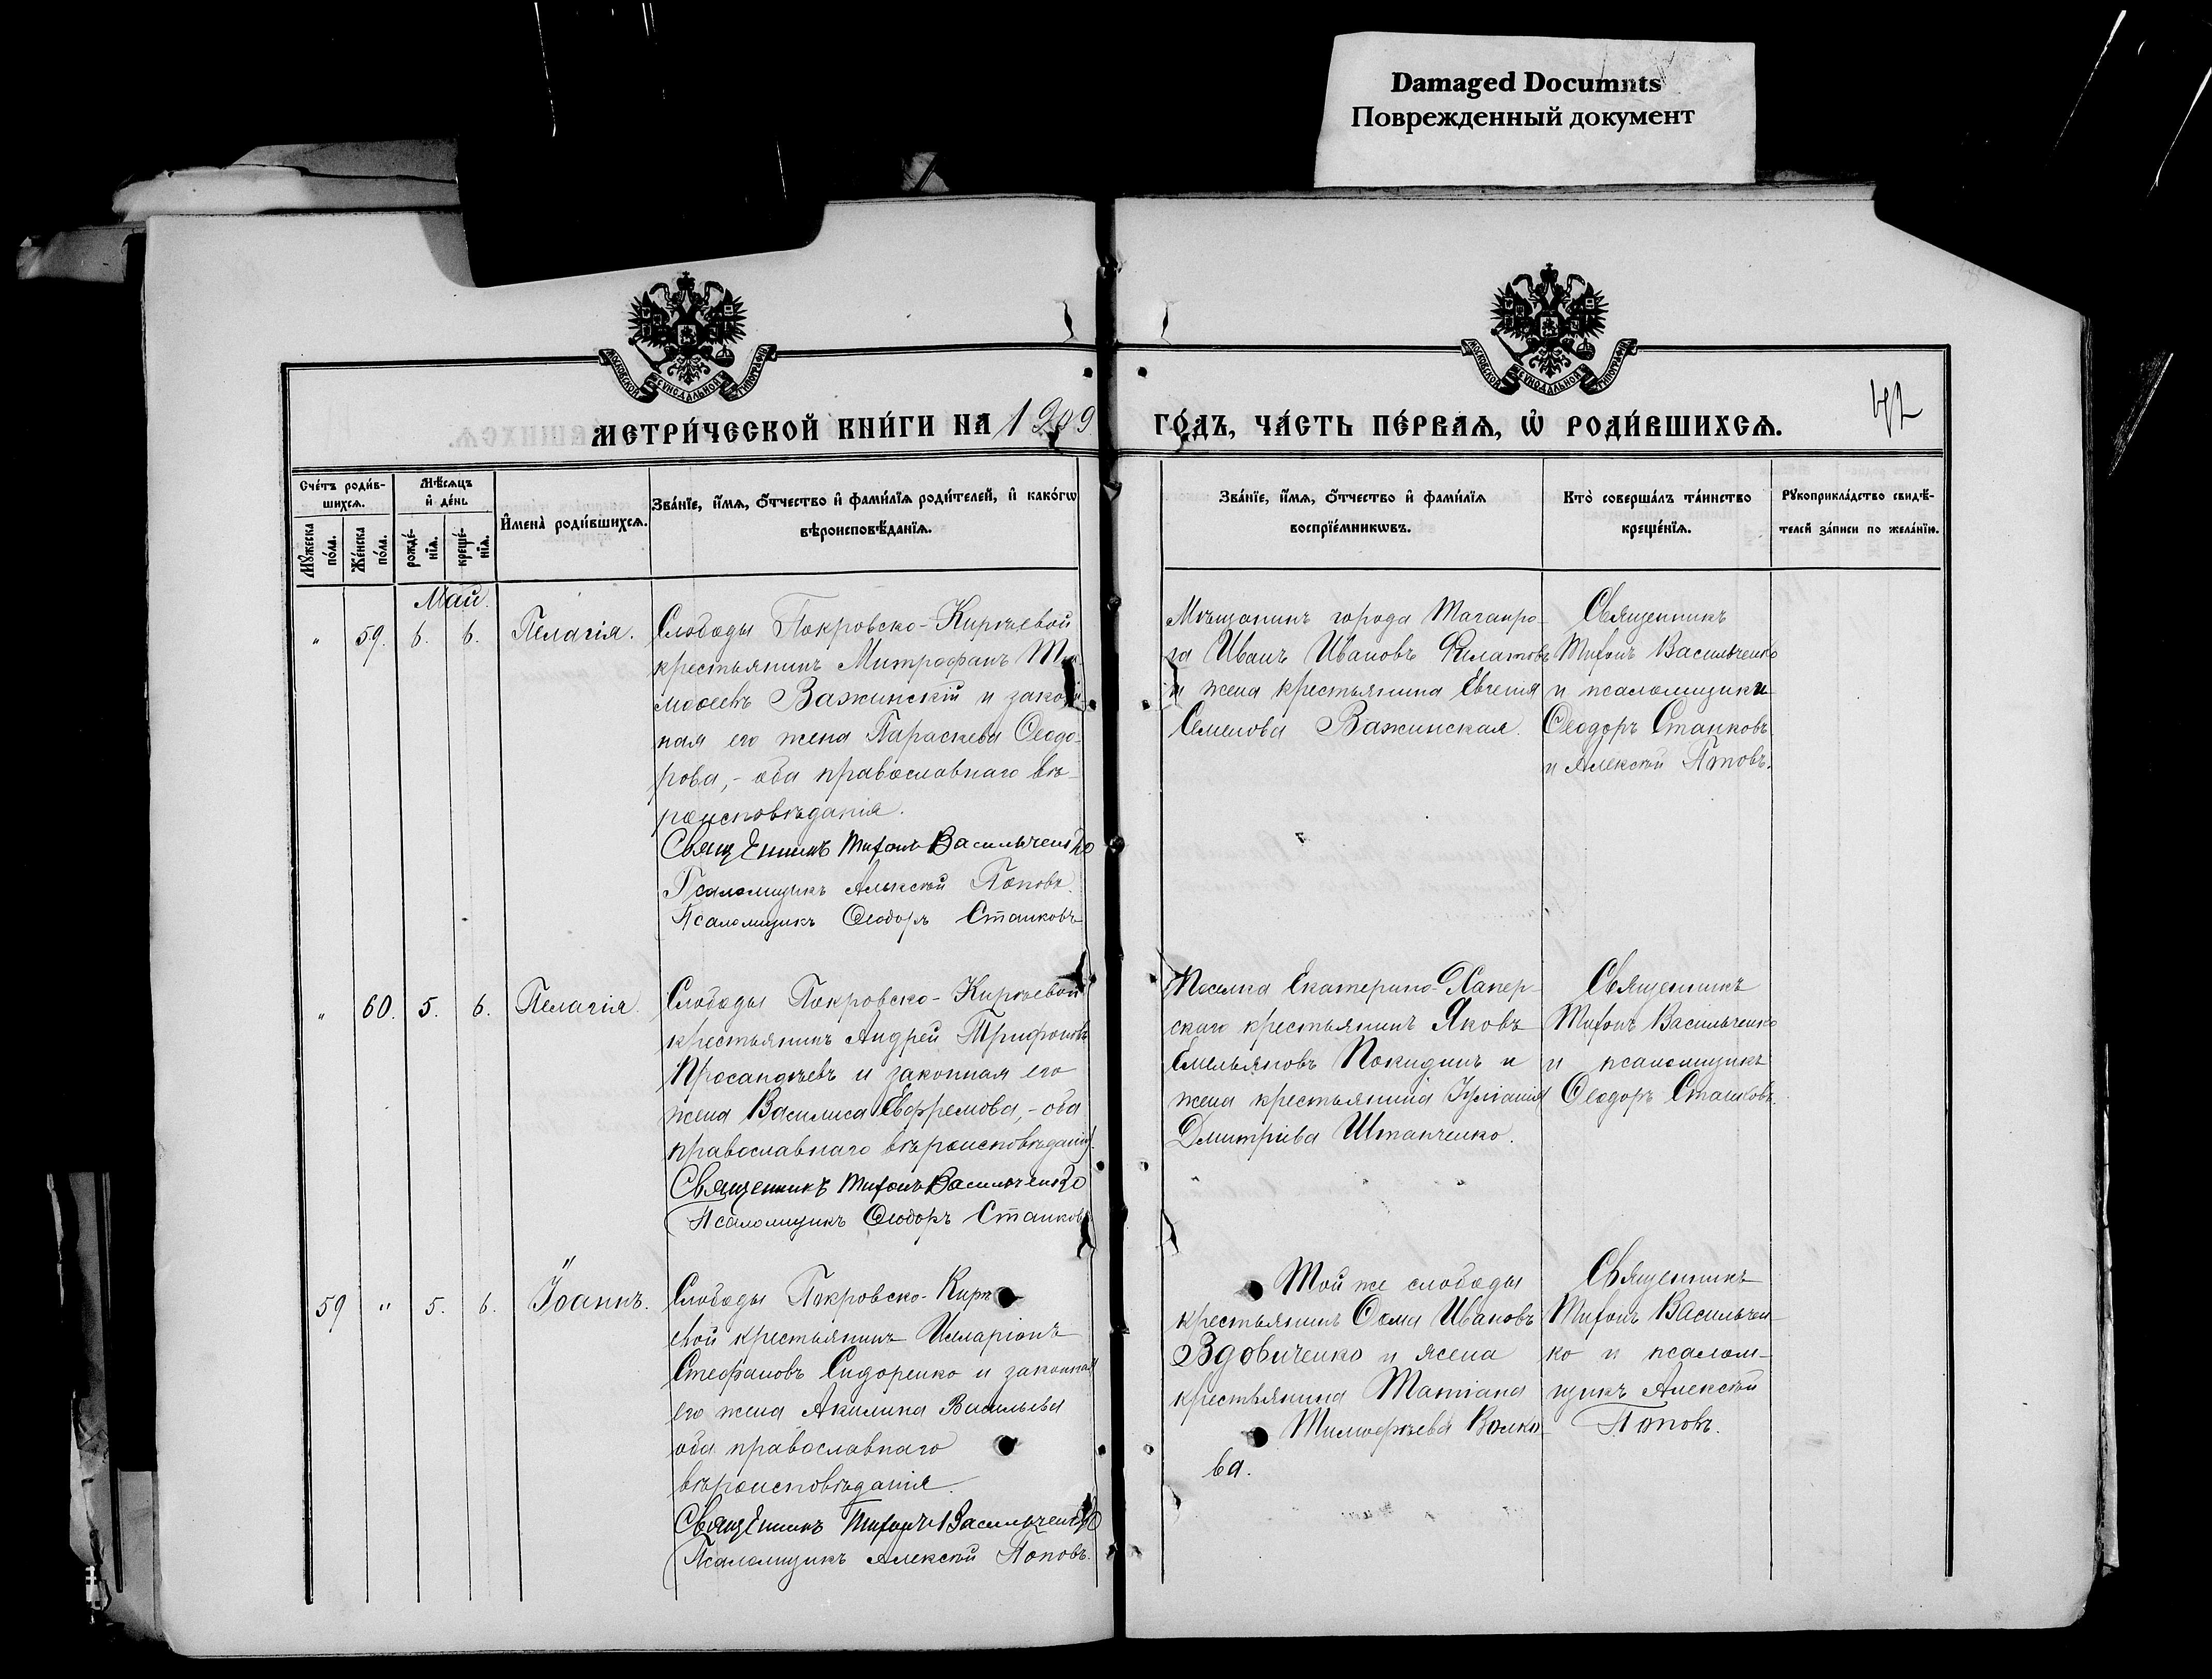 Damaged Documnts
Поврежденный документ
МОСКОВСКОЙ СѴНОДАЛЬНОЙ ТИПОГРАФІИ
МОСКОВСКОЙ СѴНОДАЛЬНОЙ ТИПОГРАФІИ
МЕТРИ́ЧЕСКОЙ КНИ́ГИ НА 1909 ГО́ДЪ, ЧА́СТЬ ПЕ́РВАѦ, Ѡ҆ РОДИ́ВШИХСѦ.
42
Сче́тъ роди́в-
шихсѧ.
Мꙋ́жеска по́ла.
Же́нска по́ла.
Мѣ́сѧцъ
и҆ де́нь
рожде́-
нїѧ.
креще́-
нїѧ.
И҆мена̀ роди́вшихсѧ.
Зва́нїе, и҆́мѧ, ѻ҆́тчество и҆ фами́лїѧ роди́телей, и҆ како́гѡ
вѣроисповѣ́данїѧ.
Зва́нїе, и҆́мѧ, ѻ҆́тчество и҆ фами́лїѧ
воспрїе́мникѡвъ.
Кто̀ соверша́лъ та́инство
креще́нїѧ.
Рꙋкоприкла́дство свидѣ́-
телей за́писи по жела́нїю.
Май.
" 59. 6. 6. Пелагія.
Слободы Покровско-Кирѣевой
крестьянинъ Митрофанъ Ти-
моѳеевъ Важинскій и закон-
ная его жена Параскева Ѳеодо-
рова, - оба православнаго вѣ-
роисповѣданія.
Священникъ Тихонъ Васильченко
Псаломщикъ Алексѣй Поповъ.
Псаломщикъ Ѳеодоръ Станковъ
Мѣщанинъ города Таганро-
га Иванъ Ивановъ
и жена крестьянина Евгенія
Семенова Важинская.
Священникъ
Тихонъ Васильченко
и псаломщики
Ѳеодоръ Станковъ
и Алексѣй Поповъ.
" 60. 5. 6. Пелагія.
Слободы Покровско-Кирѣевой
крестьянинъ Андрей Трифоновъ
и законная его
жена Василиса Евфремова, - оба
православнаго вѣроисповѣданія.
Священникъ Тихонъ Васильченко
Псаломщикъ Ѳеодоръ Станковъ
Поселка Екатерино-Хапер-
скаго крестьянинъ Яковъ
Емельяновъ Покидинъ и
жена крестьянина Іуліанія
Дмитріева Штанченко.
Священникъ
Тихонъ Васильченко
и псаломщикъ
Ѳеодоръ Станковъ.
59 " 5. 6. Іоаннъ.
Слободы Покровско-Кирѣ-
евой крестьянинъ Иларіонъ
Стефановъ Сидоренко и законная
его жена Акилина Васильева
оба православнаго
вѣроисповѣданія.
Священникъ Тихонъ Васильченко
Псаломщикъ Алексѣй Поповъ.
Той же слободы
крестьянинъ Ѳома Ивановъ
Вдовиченко и жена
крестьянина Татіана
Тимофѣева Волко-
ва.
Священникъ
Тихонъ Васильчен-
ко и псалом-
щикъ Алексѣй
Поповъ.